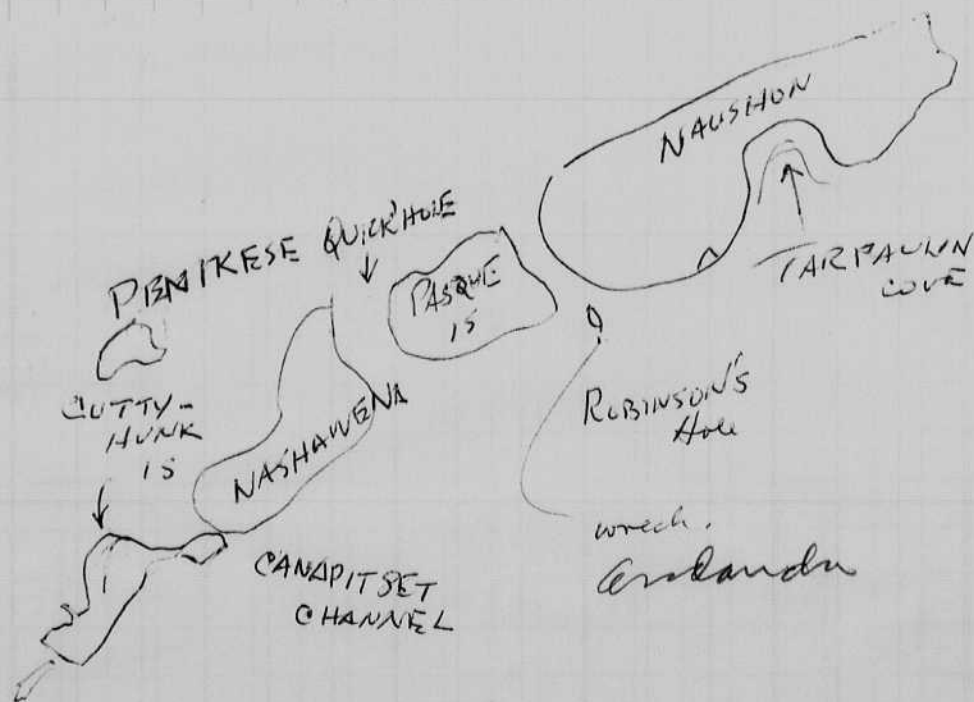 NAUSHON
TARPAULIN
COVE
PENIKESE
QUICK'HOLE
PASQUE
IS
CUTTY-
HUNK
IS
NASHAWENA
ROBINSON'S
Hole
CANAPITSET
CHANNEL
wreck.